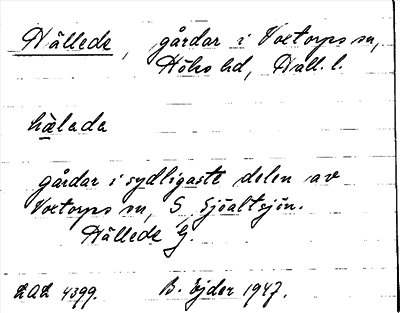 Hälleda, gårdar i Voxtorps sn,
Höks hd, Hall. l.
hälada
gårdar i sydligaste delen av
Voxtorps sn, S Sjöaltsjön.
Hälleda G.
LAL 4399. B. Ejder 1947.